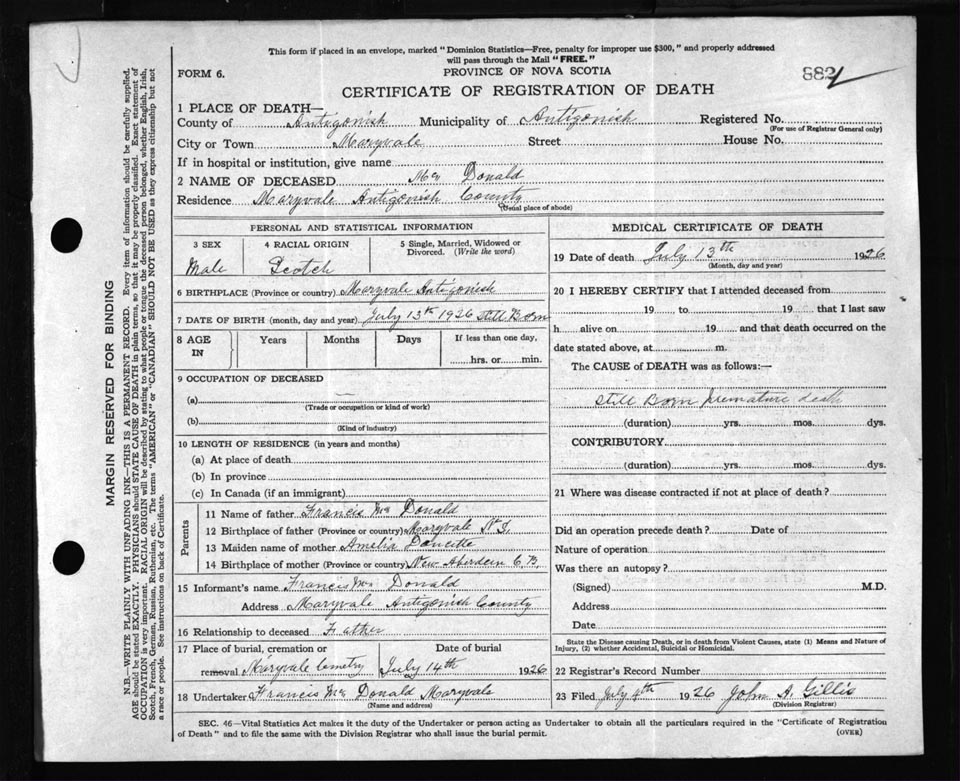 This form if placed in an envelope, marked "Dominion Statistics—Free, penalty for improper use $300," and properly addressed
will pass through the Mail "FREE."
FORM 6.
PROVINCE OF NOVA SCOTIA
882
CERTIFICATE OF REGISTRATION OF DEATH
1 PLACE OF DEATH—
County of Antigonish Municipality of Antigonish Registered No.
(For use of Registrar General only)
City or Town Maryvale Street House No.
If in hospital or institution, give name
2 NAME OF DECEASED Mc Donald
Residence Maryvale Antigonish County
(Usual place of abode)
PERSONAL AND STATISTICAL INFORMATION
3 SEX 4 RACIAL ORIGIN 5 Single, Married, Widowed or
Divorced. (Write the word)
Male Scotch
6 BIRTHPLACE (Province or country) Maryvale Antigonish
7 DATE OF BIRTH (month, day and year) July 13th 1926 Still Born
8 AGE IN Years Months Days If less than one day,
hrs. or min.
9 OCCUPATION OF DECEASED
(a) —
(Trade or occupation or kind of work)
(b)
(Kind of industry)
10 LENGTH OF RESIDENCE (in years and months)
(a) At place of death
(b) In province
(c) In Canada (if an immigrant)
Parents
11 Name of father Francis Mc Donald
12 Birthplace of father (Province or country) Maryvale N.S.
13 Maiden name of mother Amelia Doucette
14 Birthplace of mother (Province or country) New Aberdeen C B
15 Informant's name Francis Mc Donald
Address Maryvale Antigonish County
16 Relationship to deceased Father
17 Place of burial, cremation or removal Date of burial
Maryvale Cemetry July 14th 1926
18 Undertaker Francis Mc Donald Maryvale
(Name and address)
MEDICAL CERTIFICATE OF DEATH
19 Date of death July 13th 1926
(Month, day and year)
20 I HEREBY CERTIFY that I attended deceased from
19 to 19 that I last saw
h alive on 19 and that death occurred on the
date stated above, at m.
The CAUSE of DEATH was as follows:—
Still Born premature death
(duration) yrs. mos. dys.
CONTRIBUTORY
(duration) yrs. mos. dys.
21 Where was disease contracted if not at place of death?
Did an operation precede death? Date of
Nature of operation
Was there an autopsy?
(Signed) M.D.
Address
Date
State the Disease causing Death, or in death from Violent Causes, state (1) Means and Nature of
Injury, (2) whether Accidental, Suicidal or Homicidal.
22 Registrar's Record Number
23 Filed July 1926 John A. Gillis
(Division Registrar)
SEC. 46—Vital Statistics Act makes it the duty of the Undertaker or person acting as Undertaker to obtain all the particulars required in the "Certificate of Registration
of Death" and to file the same with the Division Registrar who shall issue the burial permit.
(OVER)
MARGIN RESERVED FOR BINDING
N.B.—WRITE PLAINLY WITH UNFADING INK—THIS IS A PERMANENT RECORD. Every item of information should be carefully supplied.
AGE should be stated EXACTLY. PHYSICIANS should STATE CAUSE OF DEATH in plain terms, so that it may be properly classified. Exact statement of
OCCUPATION is very important. RACIAL ORIGIN will be described by stating to what people or tongue the deceased person belonged, whether English, Irish,
Scotch, French, German, Russian, Ruthenian, etc. The terms "AMERICAN" or "CANADIAN" SHOULD NOT BE USED as they express citizenship but not
a race or people. See instructions on back of Certificate.